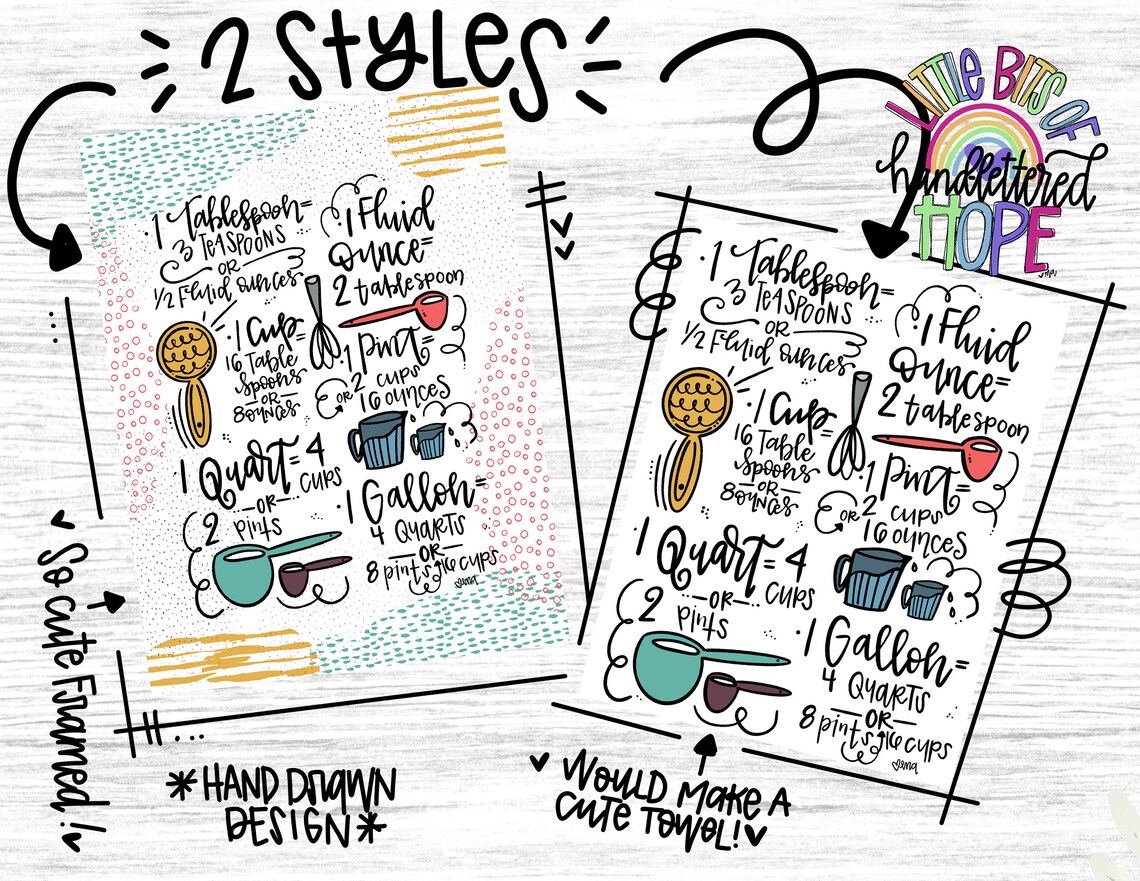 2 STYLES
LITTLE BITS OF
handlettered
HOPE
1 Tablespoon=
3 TEASPOONS
OR
1/2 Fluid ounces
1 Fluid
Ounce=
2 tablespoon
1 Cup=
16 Table
spoons
-OR-
8 ounces
1 Pint=
2 cups
OR
16 ounces
1 Quart=4
CUPS
-OR-
2 pints
1 Gallon=
4 QUARTS
-OR-
8 pints 16 cups
1 Tablespoon=
3 TEASPOONS
OR
1/2 Fluid ounces
1 Fluid
Ounce=
2 tablespoon
1 Cup=
16 Table
spoons
-OR-
8 ounces
1 Pint=
2 cups
OR
16 ounces
1 Quart=4
CUPS
-OR-
2 pints
1 Gallon=
4 QUARTS
-OR-
8 pints 16 cups
So cute Framed!
*HAND DRAWN
DESIGN*
WOULD MAKE A
CUTE TOWEL!